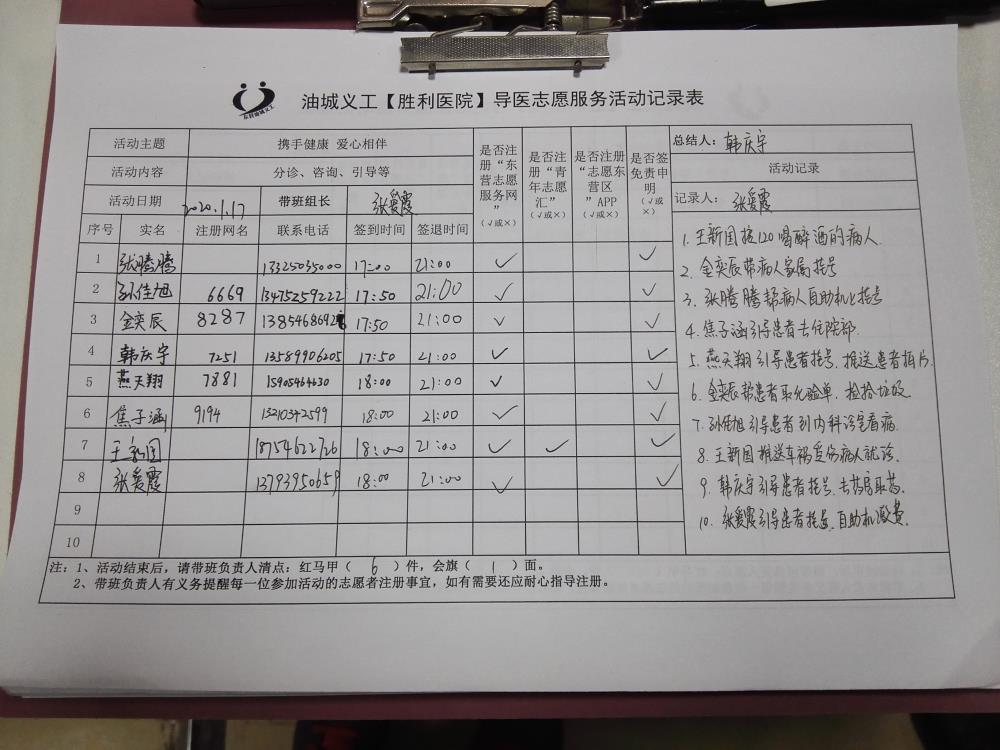 油城义工【胜利医院】导医志愿服务活动记录表
活动主题 携手健康 爱心相伴
活动内容 分诊、咨询、引导等
活动日期 2020.1.17 带班组长 张爱霞
序号 实名 注册网名 联系电话 签到时间 签退时间 是否注册“东营志愿服务网”（√或×） 是否注册“青年志愿汇”（√或×） 是否注册“志愿东营区”APP（√或×） 是否签免责申明（√或×）
1 张腾腾 13325035000 17:00 21:00 √ √
2 孙佳旭 6669 13475259222 17:50 21:00 √ √
3 金奕辰 8287 1385468692 17:50 21:00 √ √
4 韩庆宇 7251 13589906205 17:50 21:00 √ √
5 燕天翔 7881 15905464630 18:00 21:00 √ √
6 焦子涵 9194 13210342599 18:00 21:00 √ √
7 王新国 18754622726 18:00 21:00 √ √ √
8 张爱霞 13793950659 18:00 21:00 √ √
9
10
总结人：韩庆宇
活动记录
记录人：张爱霞
1. 王新国拉120喝醉酒的病人
2. 金奕辰带病人家属挂号
3. 张腾腾帮病人自助机上挂号
4. 焦子涵引导患者去住院部.
5. 燕天翔引导患者挂号，推送患者拍片.
6. 金奕辰帮患者取化验单，捡拾垃圾
7. 孙佳旭引导患者到内科诊室看病.
8. 王新国推送车祸受伤病人就诊.
9. 韩庆宇引导患者挂号，去药房取药.
10. 张爱霞引导患者挂号，自助机缴费.
注：1、活动结束后，请带班负责人清点：红马甲（6）件，会旗（1）面。
2、带班负责人有义务提醒每一位参加活动的志愿者注册事宜，如有需要还应耐心指导注册。